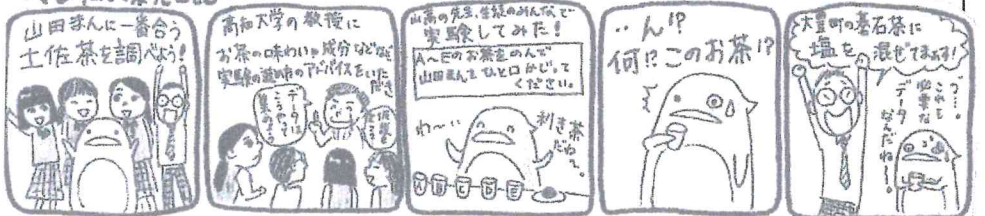 山田まんに一番合う
土佐茶を調べよう!
高知大学の教授に
お茶の味わい・成分などなど
実験の意味のアドバイスをいただき
データは
こうやって
集めるのよ
山高の先生、生徒のみんなで
実験してみた!
A〜Eのお茶をのんで
山田まんをひと口かじって
ください。
わ〜い
利き茶
だね〜
A B C D E
‥ん!?
何!?このお茶!?
大豊町の碁石茶に
塩を混ぜてます!
う…
これも
必要な
データ
なんだね…